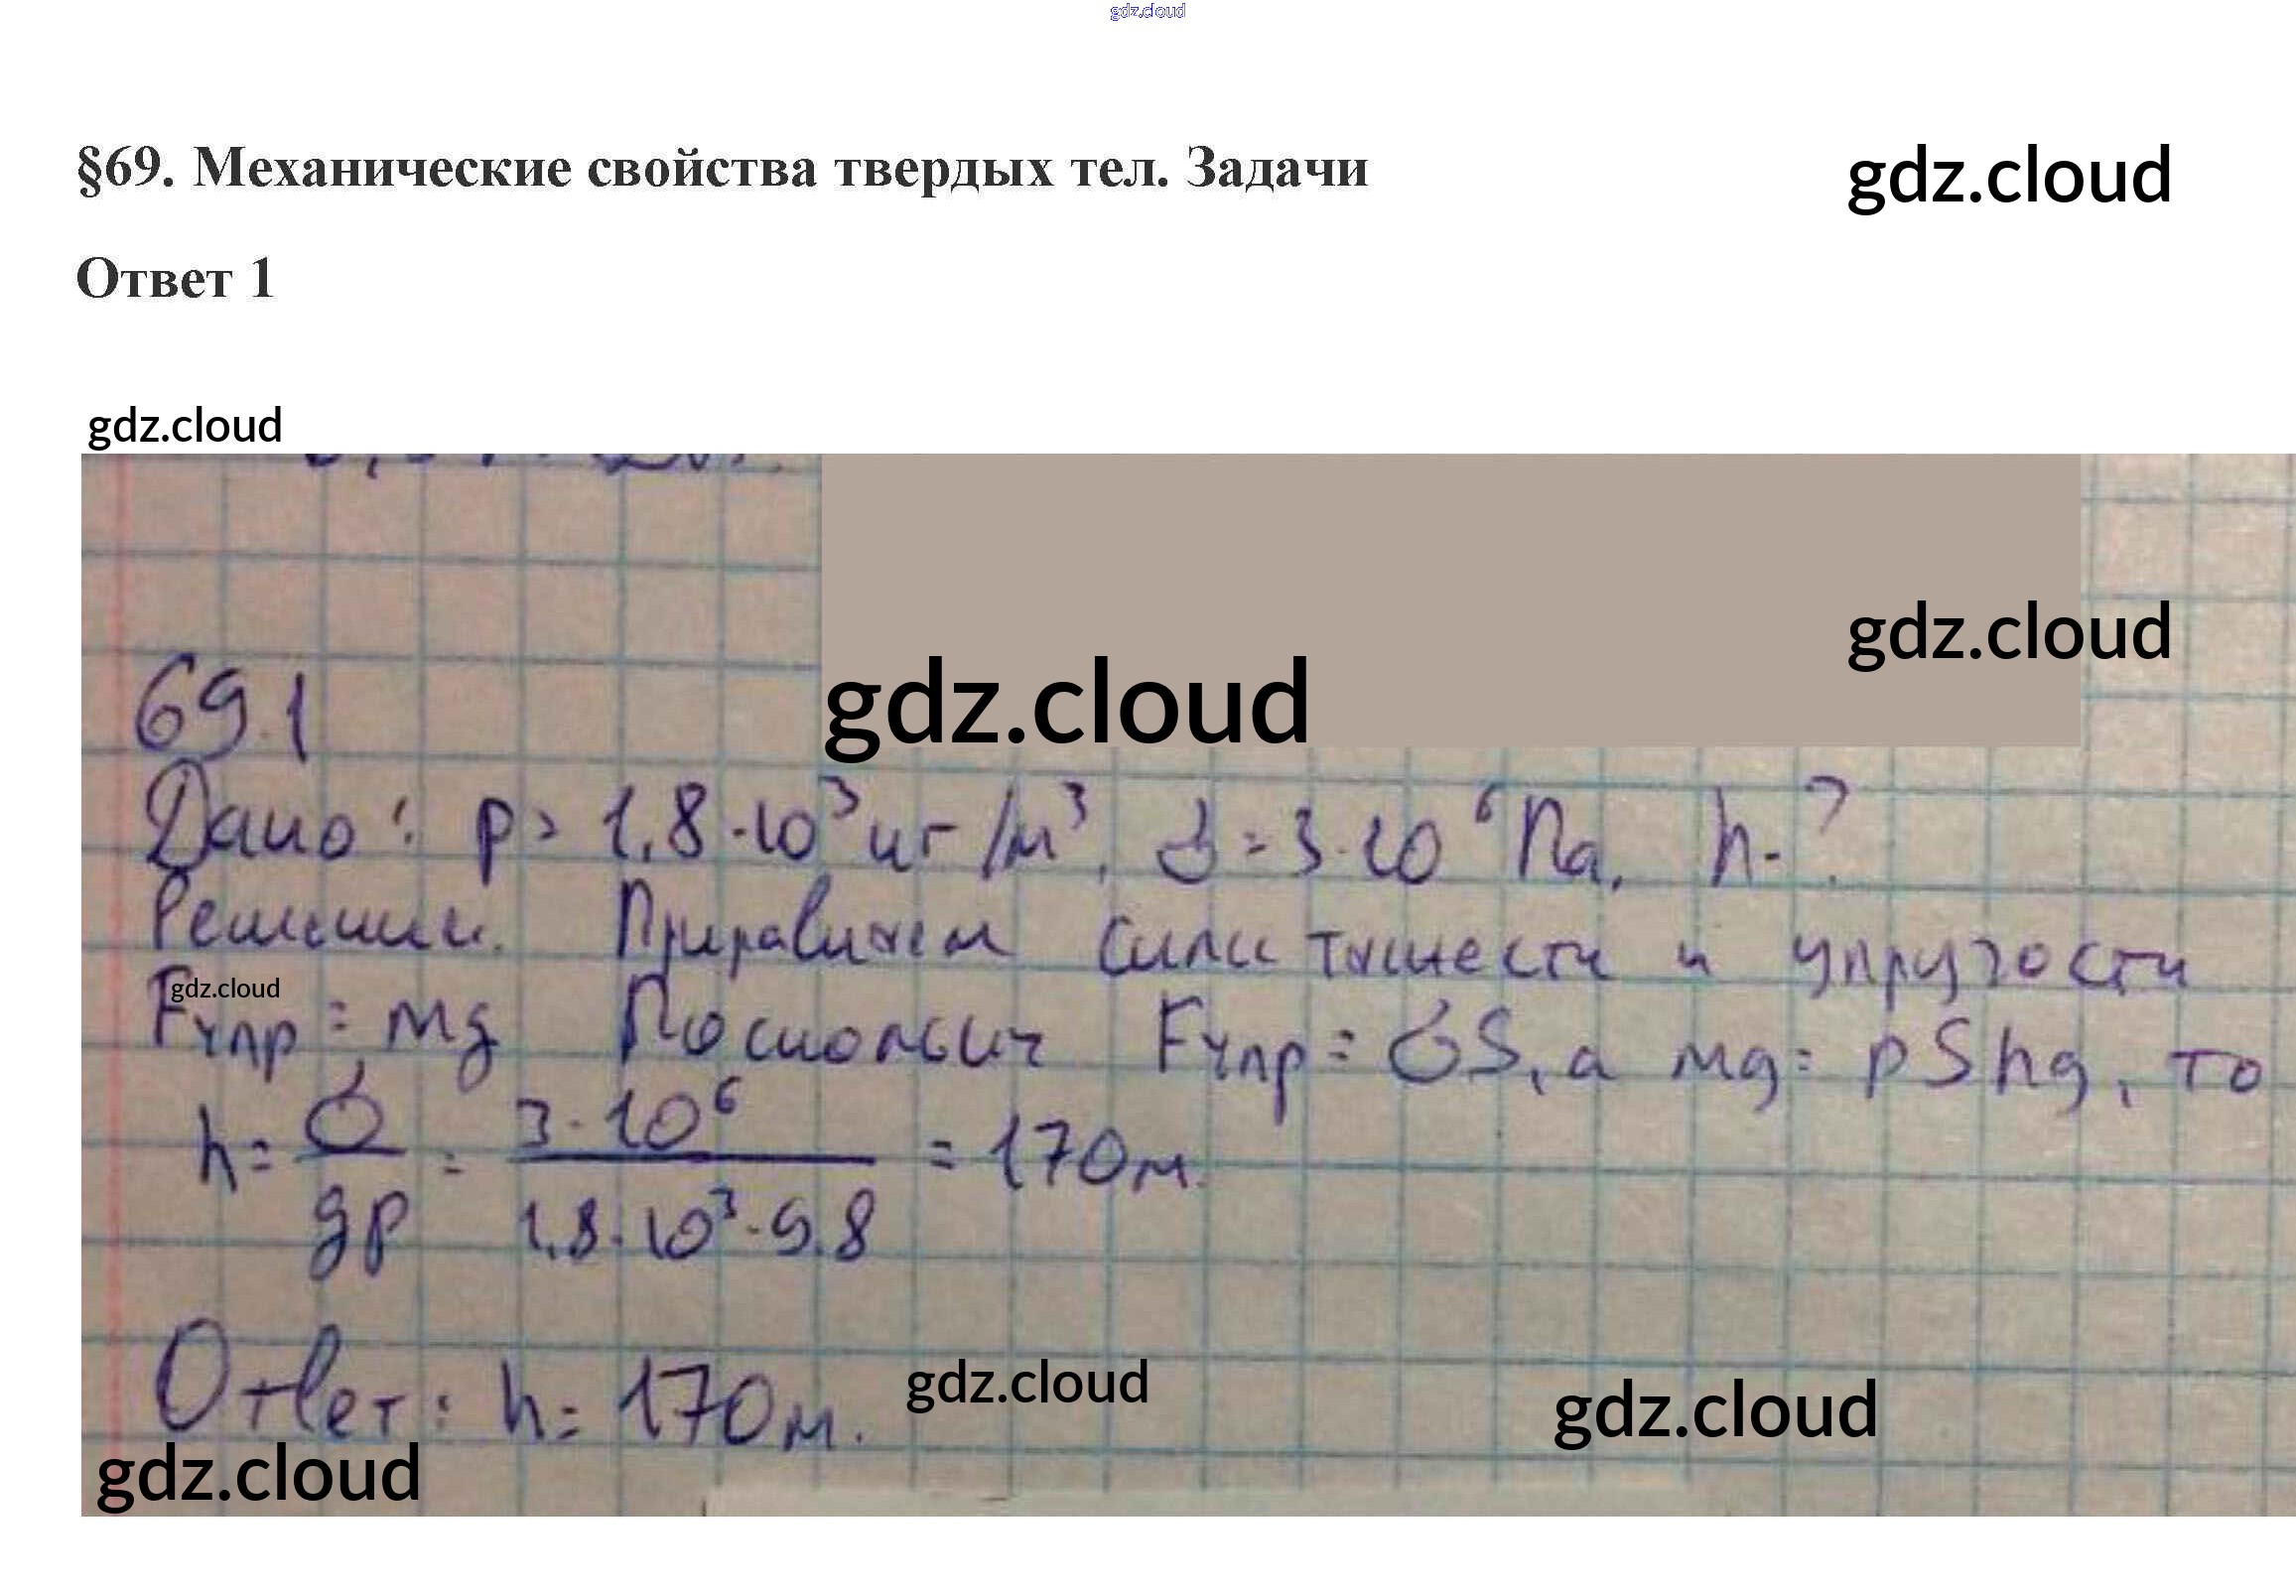 gdz.cloud
§69. Механические свойства твердых тел. Задачи
gdz.cloud
Ответ 1
gdz.cloud
gdz.cloud
69.1
gdz.cloud
Дано: ρ = 1,8·10³ кг/м³, σ = 3·10⁶ Па. h-?
Решение. Приравняем силы тяжести и упругости
gdz.cloud
Fупр = mg Поскольку Fупр = σS, а mg = ρShg, то
h = σ/gρ = 3·10⁶/1,8·10³·9,8 = 170м.
Ответ: h = 170м.
gdz.cloud
gdz.cloud
gdz.cloud